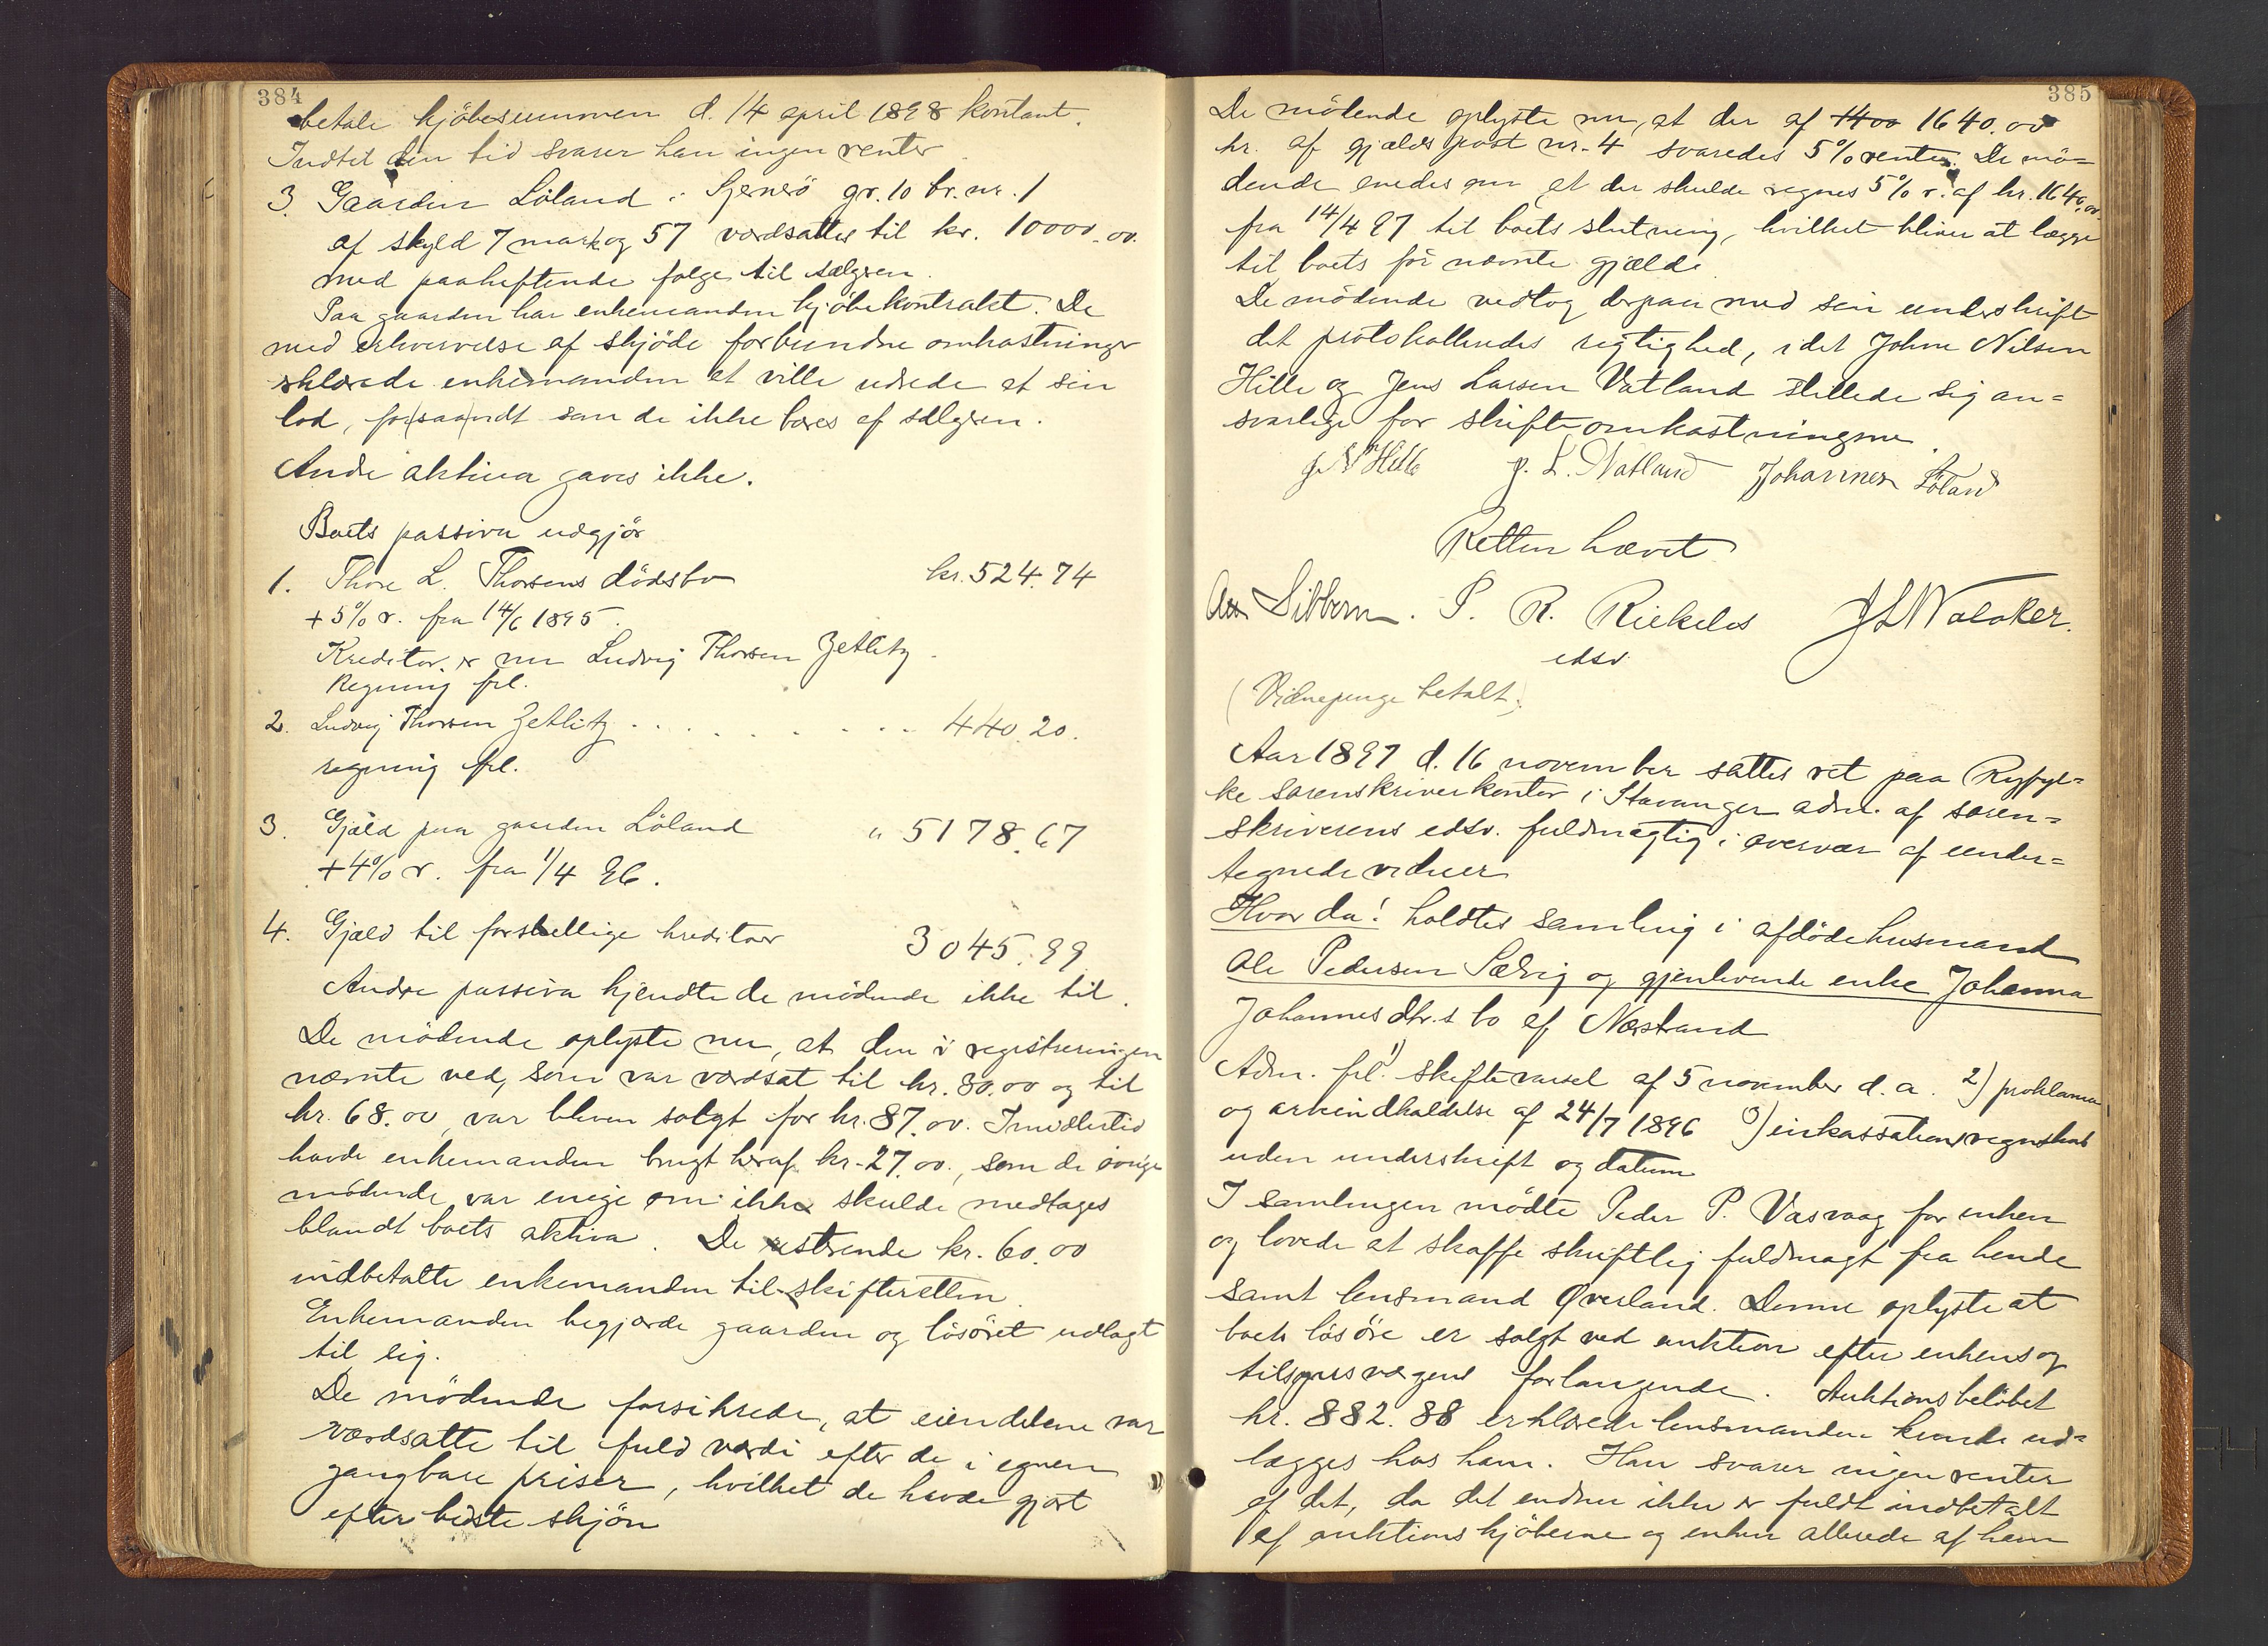 384
betale kjöbesummen d. 14 april 1898 kontant.
Indtil den tid svarer han ingen renter
3. Gaarden Löland i Sjernerö gr. 10 br. nr. 1
af skyld 7 mark og 57 værdsattes til kr. 10000.00.
med paaheftende folge til sælgren.
Paa gaarden har enkemanden kjöbekontrakt. De
med erhvervelse af skjöde forbundne omkostninger
erklærede enkemanden at ville udrede at sin
lod, forsaavidt som de ikke bæres af sælgren.
Andre aktiva gaves ikke.
Boets passiva udgjör
1. Thore L. Thorsens dödsbo kr. 524.74
+ 5% r. fra 14/6 1895.
Kreditor er nu Ludvig Thorsen Zetlitz.
Regning frl.
2. Ludvig Thorsen Zetlitz . . . . . . . . . 440.20.
regning frl.
3. Gjæld paa gaarden Löland " 5178.67
+ 4% r. fra 1/4 96.
4. Gjæld til forskellige kreditorer 3045.99
Andre passiva kjendte de mödende ikke til.
De mödende oplyste nu, at den i registreringen
nævnte ved, som var værdsat til kr. 30.00 og til
kr. 68.00, var bleven solgt for kr. 87.00. Imidlertid
havde enkemanden brugt heraf kr. 27.00, som de övrige
mödende var enige om ikke skulde medtages
blandt boets aktiva. De resterende kr. 60.00
indbetalte enkemanden til skifteretten.
Enkemanden begjærede gaarden og lösöret udlagt
til sig.
De mödende forsikrede, at eiendelene var
værdsatte til fuld værdi efter de i egnen
gangbare priser, hvilket de havde gjort
efter bedste skjön
385
De mödende oplyste nu, at der af 1400 1640.00
kr. af gjælds post nr. 4 svaredes 5% renter. De mö=
dende enedes om at der skulde regnes 5% r. af kr. 1640.00
fra 14/4 97 til boets slutning, hvilket bliver at lægge
til boets för nævnte gjæld.
De mödende vedtog derpaa med sin underskrift
det protokollendes rigtighed, idet Johne Nilsen
Hille og Jens Larsen Vatland stillede sig an=
svarlige for skifteomkostningerne.
J. N. Hille J. L. Vatland Johannes Löland
Retten hævet
Sibbern. P. R. Riekeles J L Walaker.
edsv.
(Vidnepenge betalt.)
Aar 1897 d. 16 november sattes ret paa Ryfyl=
ke sorenskriverkontor i Stavanger adm. af soren=
skriverens edsv. fuldmægtig i overvær af under=
tegnede vidner
Hvor da! holdtes samling i afdöde husmand
Ole Pedersen Sælvig og gjenlevende enke Johanna
Johannesdtr.s bo af Nærstrand
Adm. frl. 1) skiftevarsel af 5 november d. a. 2) proklama
og arkindkaldelse af 24/7 1896 3) inkassationsregnskab
uden underskrift og datum
I samlingen mödte Peder P. Vasvaag for enken
og lovede at skaffe skriftlig fuldmagt fra hende
samt lensmand Øverland. Denne oplyste at
boets lösöre er solgt ved auktion efter enkens og
tilsynsvergens forlangende. Auktionsbelöbet
kr. 882.88 erklærede lensmanden kunde ud=
lægges hos ham. Han svarer ingen renter
af det, da det endnu ikke er fuldt indbetalt
af auktionskjöberne og enken allerede af ham